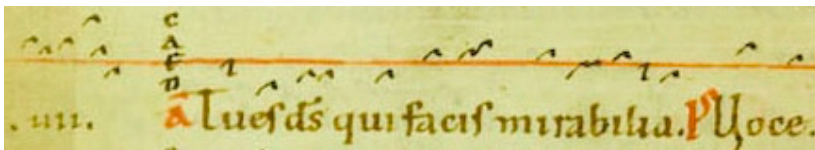 C
A
F
D
.iiii. Ā Tu eſ dſ̄ qui faciſ mirabilia. Pſ Voce.